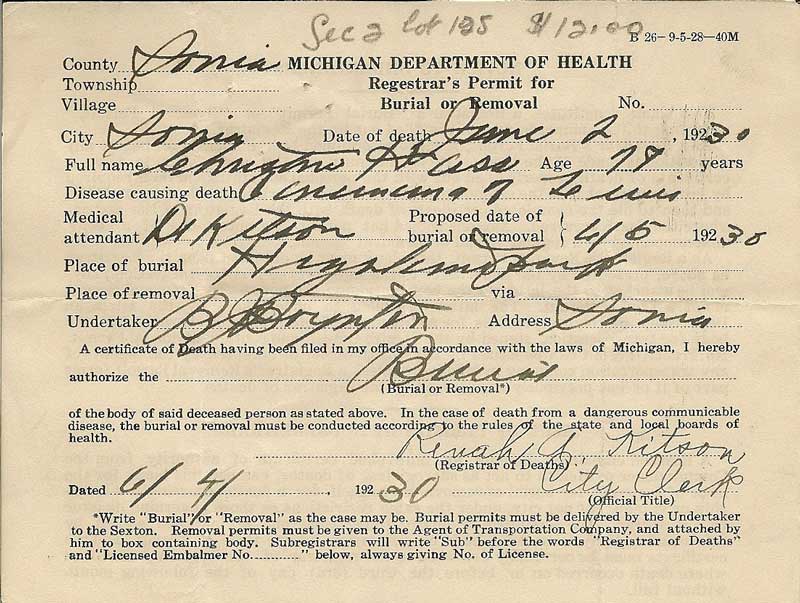 Sec 2 Lot 125 $12.00
B 26—9-5-28—40M
County Ionia MICHIGAN DEPARTMENT OF HEALTH
Township Regestrar's Permit for
Village Burial or Removal No.
City Ionia Date of death June 2, 192330
Full name Hass Age 79 years
Disease causing death of
Medical Proposed date of
attendant Dr Kitson burial or removal 6/5 19230
Place of burial
Place of removal via
Undertaker Boynton Address Ionia
A certificate of Death having been filed in my office in accordance with the laws of Michigan, I hereby
authorize the Burial
(Burial or Removal*)
of the body of said deceased person as stated above. In the case of death from a dangerous communicable
disease, the burial or removal must be conducted according to the rules of the state and local boards of
health.
A. Kitson
(Registrar of Deaths)
City Clerk
Dated 6/4/, 19230
(Official Title)
*Write "Burial" or "Removal" as the case may be. Burial permits must be delivered by the Undertaker
to the Sexton. Removal permits must be given to the Agent of Transportation Company, and attached by
him to box containing body. Subregistrars will write "Sub" before the words "Registrar of Deaths"
and "Licensed Embalmer No.........." below, always giving No. of License.